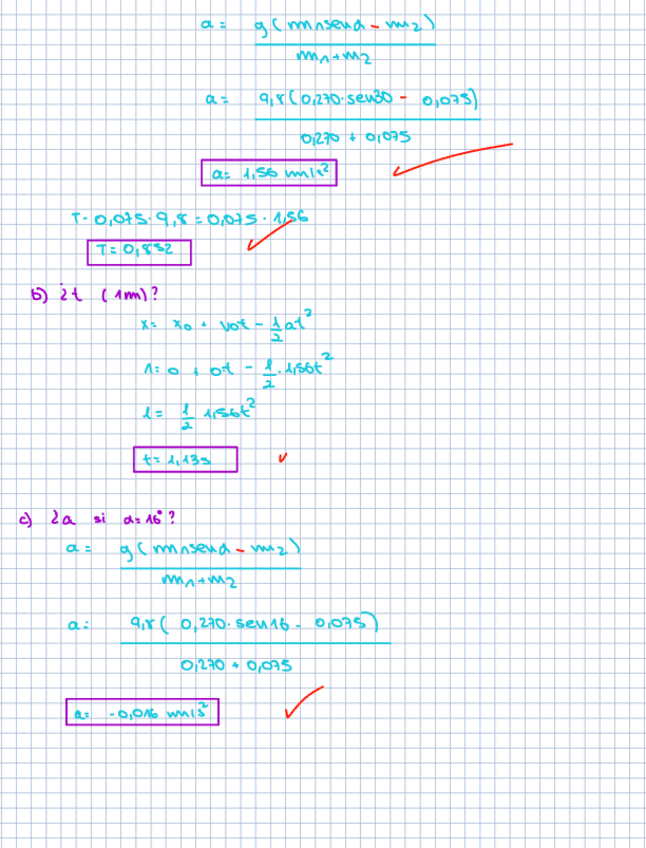 a = g(m₁senα - m₂)
m₁+m₂
a = 9,8(0,270·sen30 - 0,075)
0,270 + 0,075
a= 1,56 m/s²
T- 0,075·9,8 = 0,075·1,56
T= 0,852
b) ¿t (1m)?
x= x₀ + v₀t - 1/2 at²
1= 0 + 0t - 1/2 · 1,56t²
1= 1/2 1,56t²
t= 1,13s
c) ¿a si α=16°?
a = g(m₁senα - m₂)
m₁+m₂
a= 9,8( 0,270·sen16 - 0,075)
0,270 + 0,075
a= -0,016 m/s²